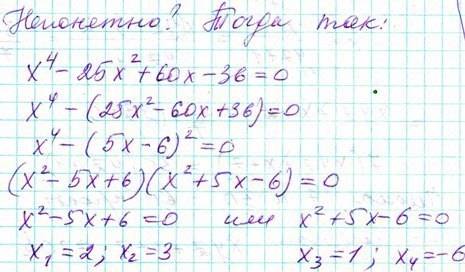 Непонятно? Тогда так:
x⁴ - 25x² + 60x - 36 = 0
x⁴ - (25x² - 60x + 36) = 0
x⁴ - (5x - 6)² = 0
(x² - 5x + 6)(x² + 5x - 6) = 0
x² - 5x + 6 = 0 или x² + 5x - 6 = 0
x₁ = 2; x₂ = 3 x₃ = 1; x₄ = -6